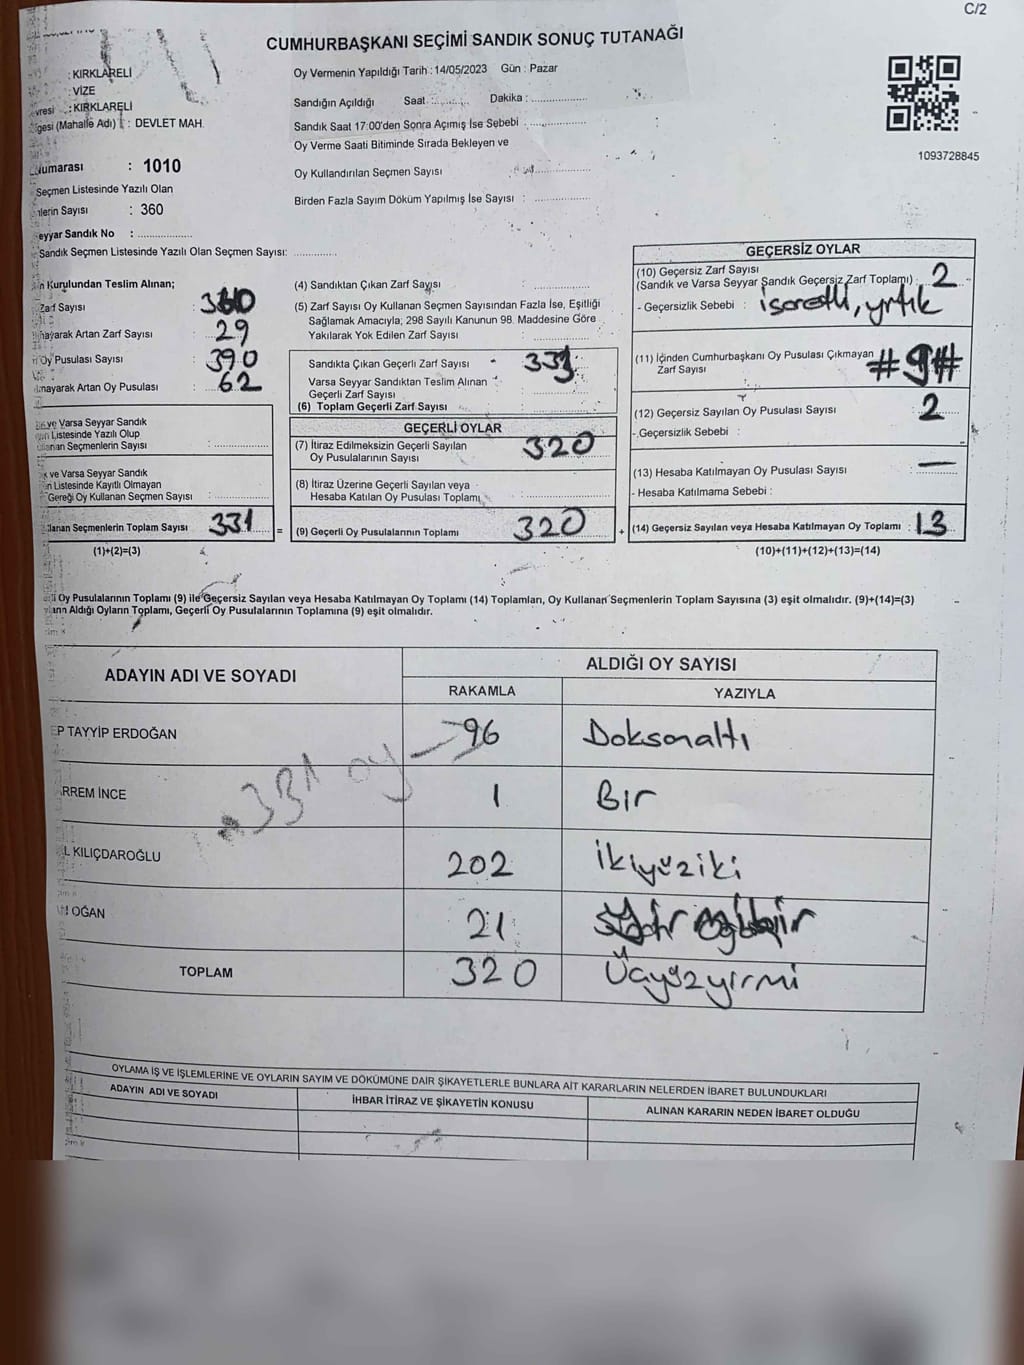 C/2
CUMHURBAŞKANI SEÇİMİ SANDIK SONUÇ TUTANAĞI
: KIRKLARELİ
: VİZE
vresi : KIRKLARELİ
gesi (Mahalle Adı) : DEVLET MAH.
Numarası : 1010
Seçmen Listesinde Yazılı Olan
nlerin Sayısı : 360
eyyar Sandık No : ................
Sandık Seçmen Listesinde Yazılı Olan Seçmen Sayısı: ..............
Oy Vermenin Yapıldığı Tarih : 14/05/2023 Gün : Pazar
Sandığın Açıldığı Saat : ........... Dakika : .................
Sandık Saat 17:00'den Sonra Açımış İse Sebebi .................
Oy Verme Saati Bitiminde Sırada Bekleyen ve
Oy Kullandırılan Seçmen Sayısı
Birden Fazla Sayım Döküm Yapılmış İse Sayısı : .................
1093728845
n Kurulundan Teslim Alınan;
Zarf Sayısı : 360
nayarak Artan Zarf Sayısı : 29
Oy Pusulası Sayısı : 390
nayarak Artan Oy Pusulası : 62
ve Varsa Seyyar Sandık
Listesinde Yazılı Olup
llanan Seçmenlerin Sayısı
ve Varsa Seyyar Sandık
n Listesinde Kayıtlı Olmayan
Gereği Oy Kullanan Seçmen Sayısı
llanan Seçmenlerin Toplam Sayısı 331 =
(1)+(2)=(3)
(4) Sandıktan Çıkan Zarf Sayısı
(5) Zarf Sayısı Oy Kullanan Seçmen Sayısından Fazla İse, Eşitliği
Sağlamak Amacıyla; 298 Sayılı Kanunun 98. Maddesine Göre
Yakılarak Yok Edilen Zarf Sayısı
Sandıkta Çıkan Geçerli Zarf Sayısı 331
Varsa Seyyar Sandıktan Teslim Alınan
Geçerli Zarf Sayısı
(6) Toplam Geçerli Zarf Sayısı
GEÇERLİ OYLAR
(7) İtiraz Edilmeksizin Geçerli Sayılan
Oy Pusulalarının Sayısı 320
(8) İtiraz Üzerine Geçerli Sayılan veya
Hesaba Katılan Oy Pusulası Toplamı
(9) Geçerli Oy Pusulalarının Toplamı 320 +
GEÇERSİZ OYLAR
(10) Geçersiz Zarf Sayısı
(Sandık ve Varsa Seyyar Sandık Geçersiz Zarf Toplamı) : 2
- Geçersizlik Sebebi : işaretli, yrtık
(11) İçinden Cumhurbaşkanı Oy Pusulası Çıkmayan
Zarf Sayısı #9#
(12) Geçersiz Sayılan Oy Pusulası Sayısı : 2
- Geçersizlik Sebebi :
(13) Hesaba Katılmayan Oy Pusulası Sayısı : —
- Hesaba Katılmama Sebebi :
(14) Geçersiz Sayılan veya Hesaba Katılmayan Oy Toplamı : 13
(10)+(11)+(12)+(13)=(14)
Oy Pusulalarının Toplamı (9) ile Geçersiz Sayılan veya Hesaba Katılmayan Oy Toplamı (14) Toplamları, Oy Kullanan Seçmenlerin Toplam Sayısına (3) eşit olmalıdır. (9)+(14)=(3)
ların Aldığı Oyların Toplamı, Geçerli Oy Pusulalarının Toplamına (9) eşit olmalıdır.
ADAYIN ADI VE SOYADI
ALDIĞI OY SAYISI
RAKAMLA YAZIYLA
EP TAYYİP ERDOĞAN 96 Doksanaltı
331 oy
RREM İNCE 1 Bir
L KILIÇDAROĞLU 202 İkiyüziki
OĞAN 21
TOPLAM 320 Üçyüzyirmi
OYLAMA İŞ VE İŞLEMLERİNE VE OYLARIN SAYIM VE DÖKÜMÜNE DAİR ŞİKAYETLERLE BUNLARA AİT KARARLARIN NELERDEN İBARET BULUNDUKLARI
ADAYIN ADI VE SOYADI İHBAR İTİRAZ VE ŞİKAYETİN KONUSU ALINAN KARARIN NEDEN İBARET OLDUĞU